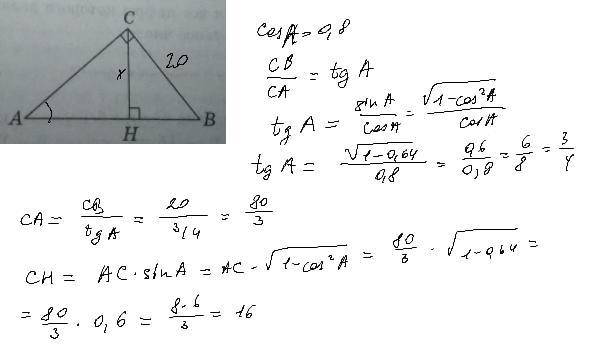 C
x
20
A
H
B
cos A = 0,8
CB/CA = tg A
tg A = sin A/cos A = √(1-cos²A)/cos A
tg A = √(1-0,64)/0,8 = 0,6/0,8 = 6/8 = 3/4
CA = CB/tg A = 20/(3/4) = 80/3
CH = AC · sin A = AC · √(1-cos²A) = 80/3 · √(1-0,64) =
= 80/3 · 0,6 = 8·6/3 = 16